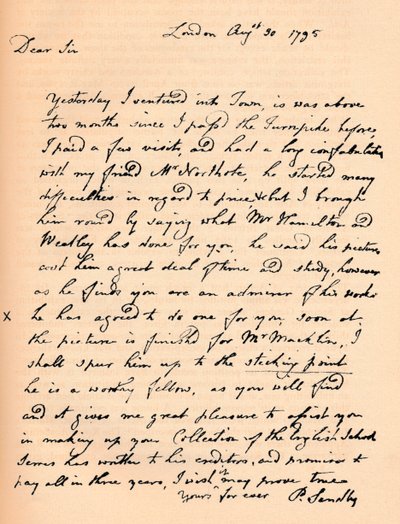 London Augst 30 1795
Dear Sir
Yesterday I ventured into Town, is was above
two months since I past the Turnpike before,
I paid a few visits, and had a long confabulation
with my friend Mr Northcote, he started many
difficulties in regard to price &c but I brough
him round by saying what Mr Hamilton and
Weatley has done for you, he said his pictures
cost him a great deal of time and study, however
as he finds you are an admirer of his works
x he has agreed to do one for you, soon as
the picture is finished for Mr Macklin, I
shall spur him up to the sticking point
he is a worthy fellow, as you will find
and it gives me great pleasure to assist you
in making up your Collection of the English School
Serres has written to his creditors, and promises to
pay all in three years, I wish it may prove true
Yours for ever P. Sandby